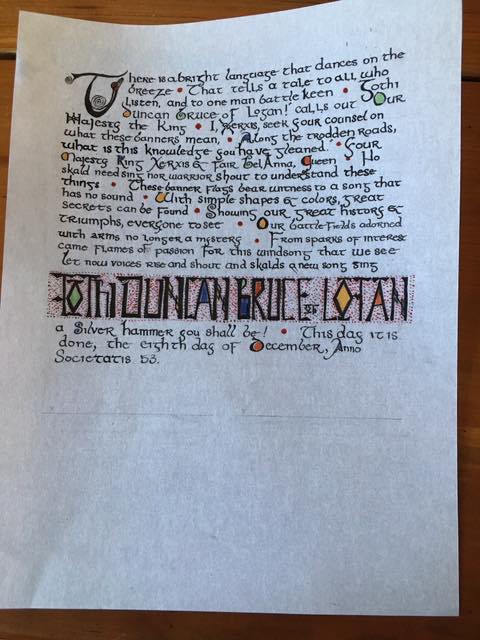 There is a bright language that dances on the
breeze • That tells a tale to all who
listen, and to one man battle keen • Gothi
Duncan Bruce of Logan! calls out Our
Majesty the King • I, Xerxis, seek your counsel on
what these banners mean, • Along the trodden roads,
what is this knowledge you have gleaned • Your
Majesty King Xerxis & fair BelAnna, Queen • No
skald need sing nor warrior shout to understand these
things • These banner flags bear witness to a song that
has no sound • With simple shapes & colors, great
secrets can be found • Showing our great history &
triumphs, everyone to see • Our battlefields adorned
with arms no longer a mystery • From sparks of interest
came flames of passion for this windsong that we see
let now voices rise and shout and skalds a new song sing
Gothi DUNCAN BRUCE of LOGAN
a Silver hammer you shall be! • This day it is
done, the eighth day of December, Anno
Societatis 53.